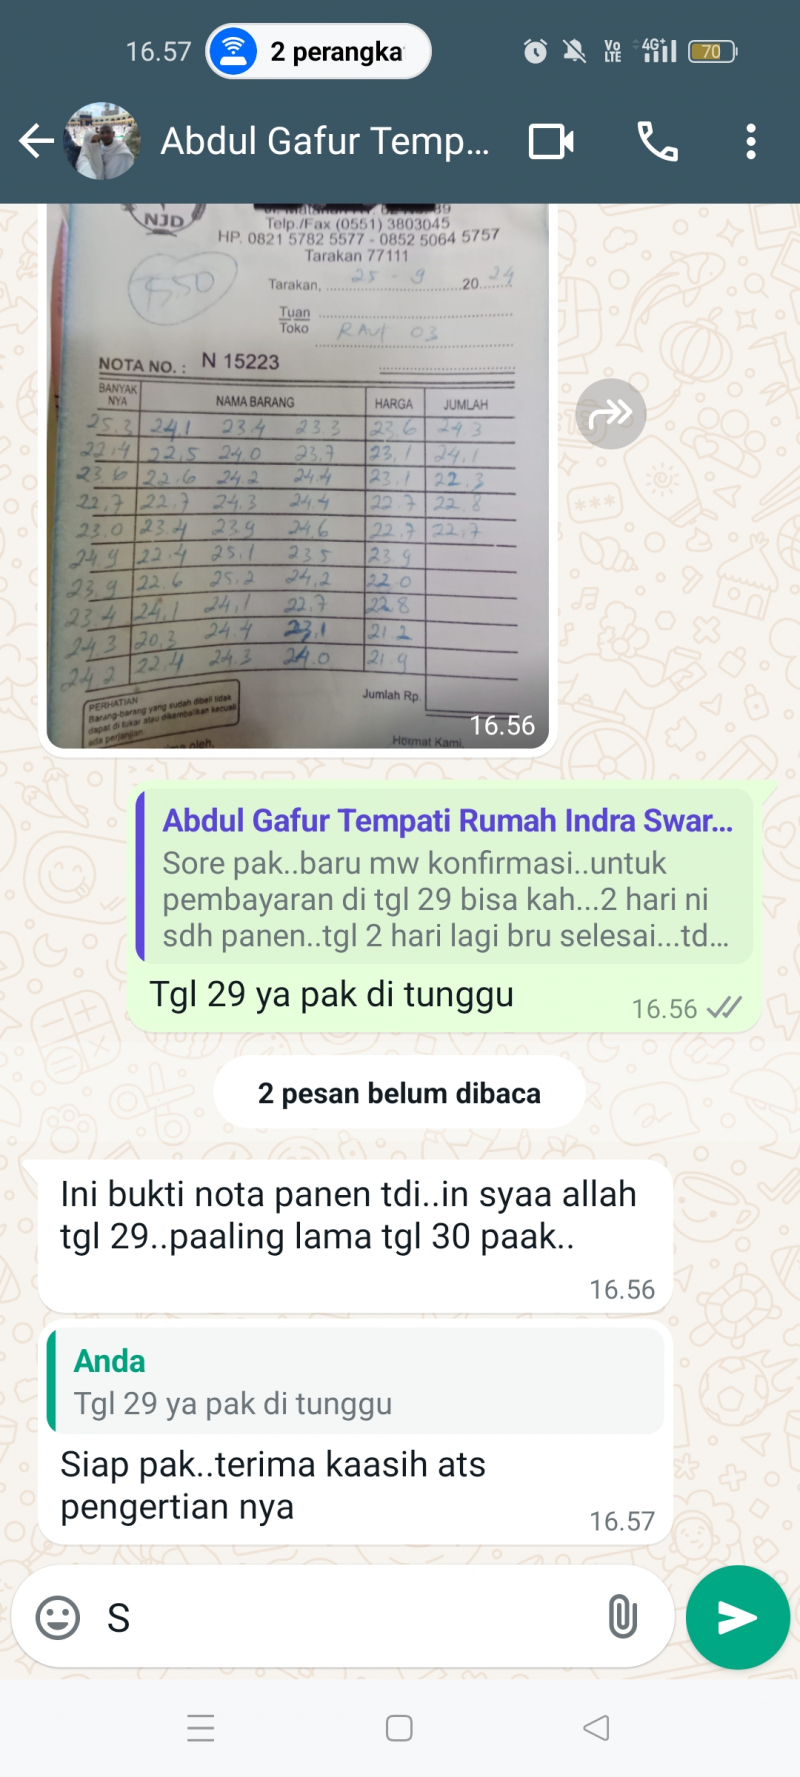 16.57
2 perangka
Vo LTE
4G+
70
Abdul Gafur Temp...
NJD
Telp./Fax (0551) 3803045
HP. 0821 5782 5577 - 0852 5064 5757
Tarakan 77111
550
Tarakan, 25 - 9 20 24
Tuan
Toko RAUF 03
NOTA NO. : N 15223
BANYAK NYA NAMA BARANG HARGA JUMLAH
25.3 24.1 23.4 23.3 23.6 24.3
22.4 22.5 24.0 23.7 23.1 24.1
23.6 22.6 24.2 24.4 23.1 22.3
22.7 22.7 24.3 24.4 22.7 22.8
23.0 23.4 23.9 24.6 22.7 22.7
24.9 22.4 25.1 23.5 23.9
23.9 22.6 25.2 24.2 22.0
23.4 24.1 24.1 22.7 22.8
24.3 20.3 24.4 23.1 21.2
24.2 22.4 24.3 24.0 21.9
PERHATIAN
Barang-barang yang sudah dibeli tidak
dapat di tukar atau dikembalikan kecuali
ada perjanjian
Jumlah Rp.
oleh,
Hormat Kami,
16.56
Abdul Gafur Tempati Rumah Indra Swar...
Sore pak..baru mw konfirmasi..untuk
pembayaran di tgl 29 bisa kah...2 hari ni
sdh panen..tgl 2 hari lagi bru selesai...td...
Tgl 29 ya pak di tunggu
16.56
2 pesan belum dibaca
Ini bukti nota panen tdi..in syaa allah
tgl 29..paaling lama tgl 30 paak..
16.56
Anda
Tgl 29 ya pak di tunggu
Siap pak..terima kaasih ats
pengertian nya
16.57
S